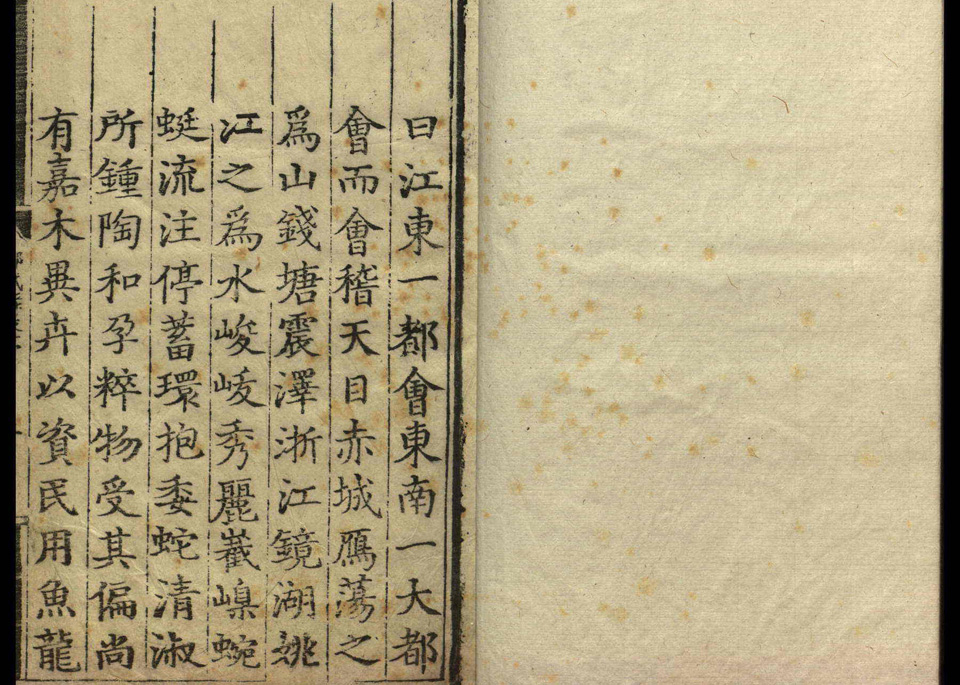 曰江東一都會東南一大都
會而會稽天目赤城鴈蕩之
爲山錢塘震澤浙江鏡湖姚
江之爲水峻崚秀麗嶻嵲蜿
蜓流注停蓄環抱委蛇清淑
所鍾陶和孕粹物受其偏尚
有嘉木異卉以資民用魚龍